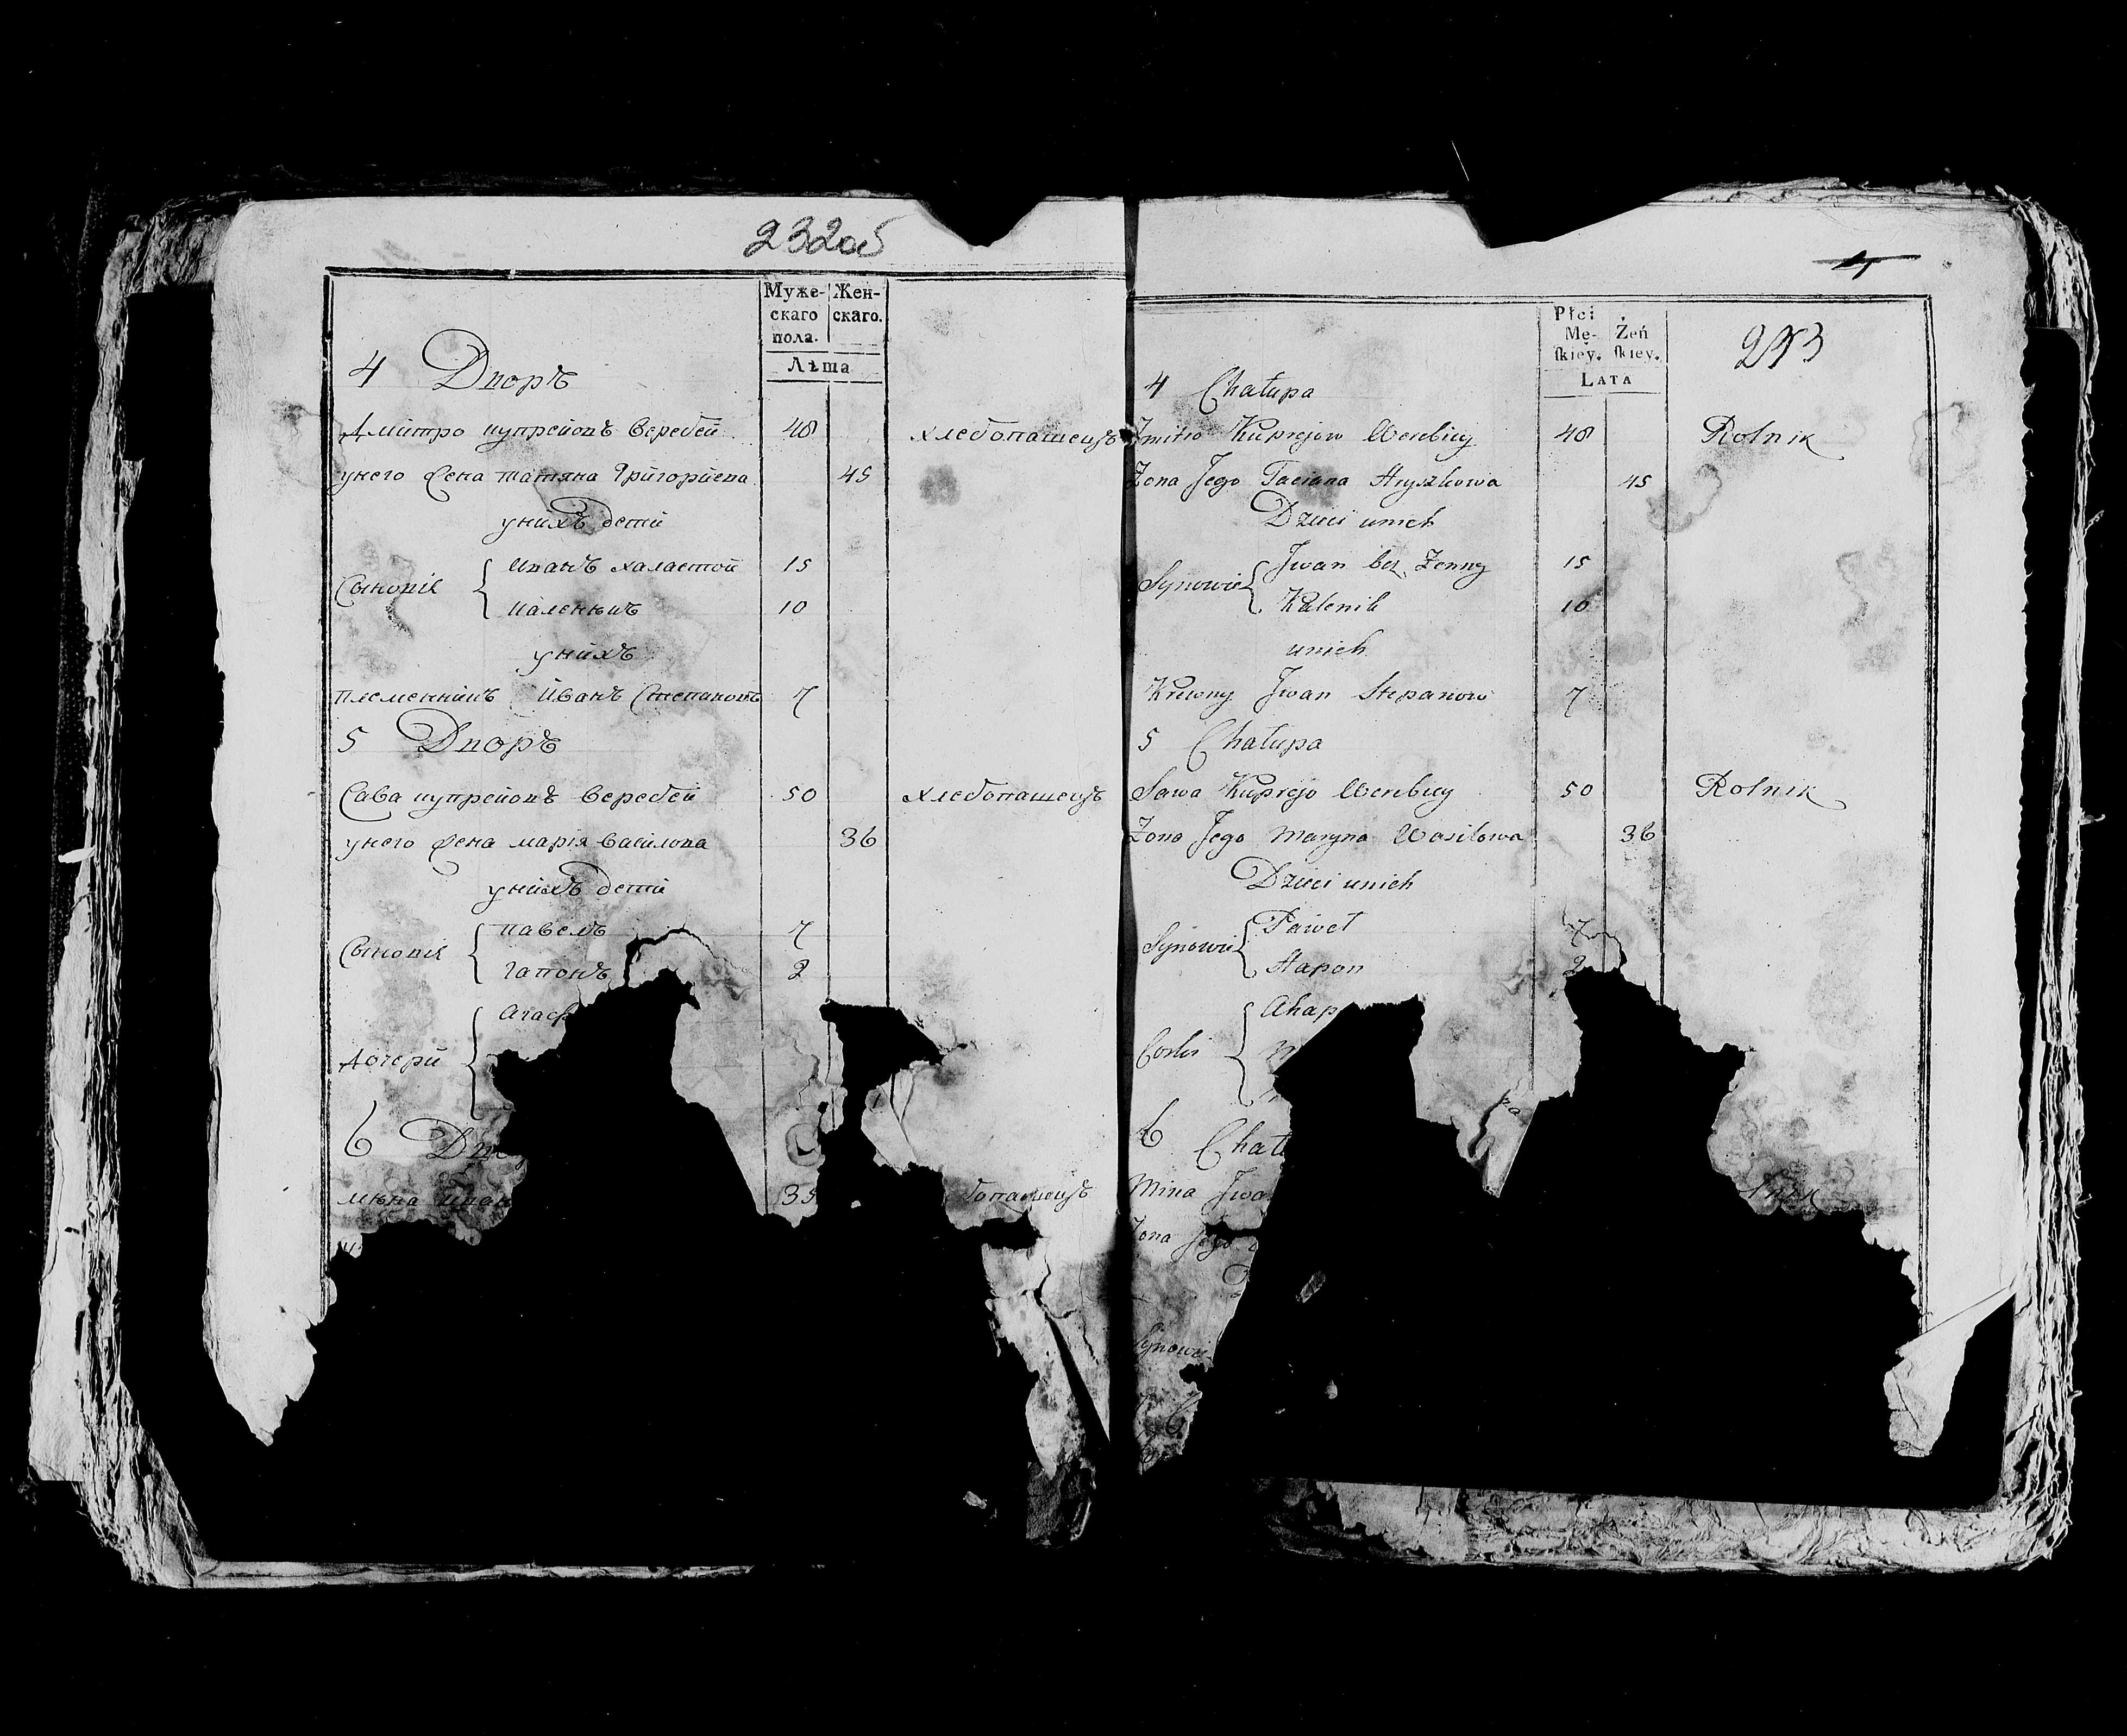 232об
Муже-
скаго
пола.
Жен-
скаго.
Лѣта
4 Дворъ
Дмитро купреионъ веребеи 48 хлебопашецъ
унего жена татяна Григориева 45
унихъ дети
Сыновія
Иванъ халастои 15
каленикъ 10
унихъ
племенникъ Иванъ Степановъ 7
5 Дворъ
Сава купреионъ веребеи 50 хлебопашецъ
унего жена марія василова 36
унихъ дети
Сыновія
павелъ 7
гапонъ 2
Агаф
дочери
6 Дво
мина иван 35 бопашецъ
4
Płci
Mę-
ſkiey.
Żeń
ſkiey.
LATA
293
4 Chałupa
Zmitro Kuprejow Werebiey 48 Rolnik
Zona Jego Taciana Hryszkowa 45
Dzieci unich
Synowie
Jwan bez Zenny 15
Kalenik 10
unich
Krewny Jwan Stepanow 7
5 Chałupa
Sawa Kuprejo Werebiey 50 Rolnik
Zona Jego Maryna Wasilowa 36
Dzieci unich
Synowie
Paweł 7
Hapon 2
Ahap
Corki
6 Chału
Mina Jwa lnik
Zona Jego
Synowie